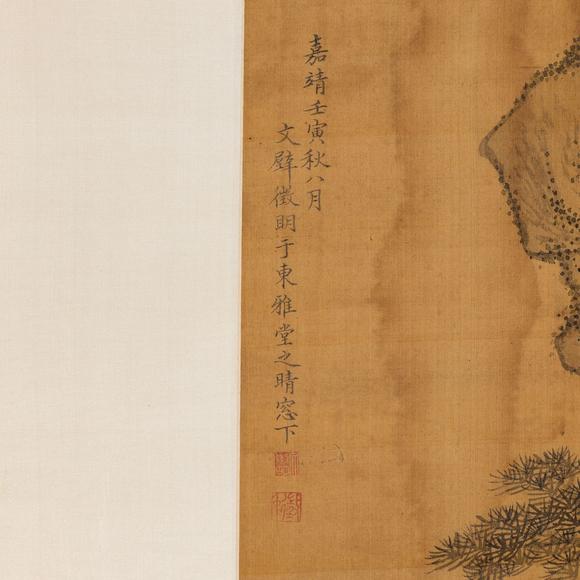 嘉靖壬寅秋八月
文壁徵明于東雅堂之晴窓下